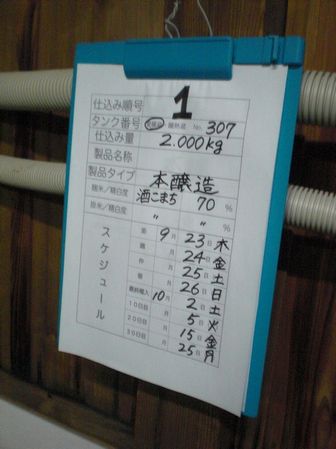 仕込み順号 1
タンク番号 No. 307
仕込み量 2.000kg
製品名称
製品タイプ 本醸造
麹米/精白度 酒こまち 70 %
掛米/精白度 〃 〃 %
スケジュール
9月 23日 木
月 24日 金
月 25日 土
月 26日 日
10月 2日 土
10日目 月 5日 火
20日目 月 15日 金
30日目 月 25日 月